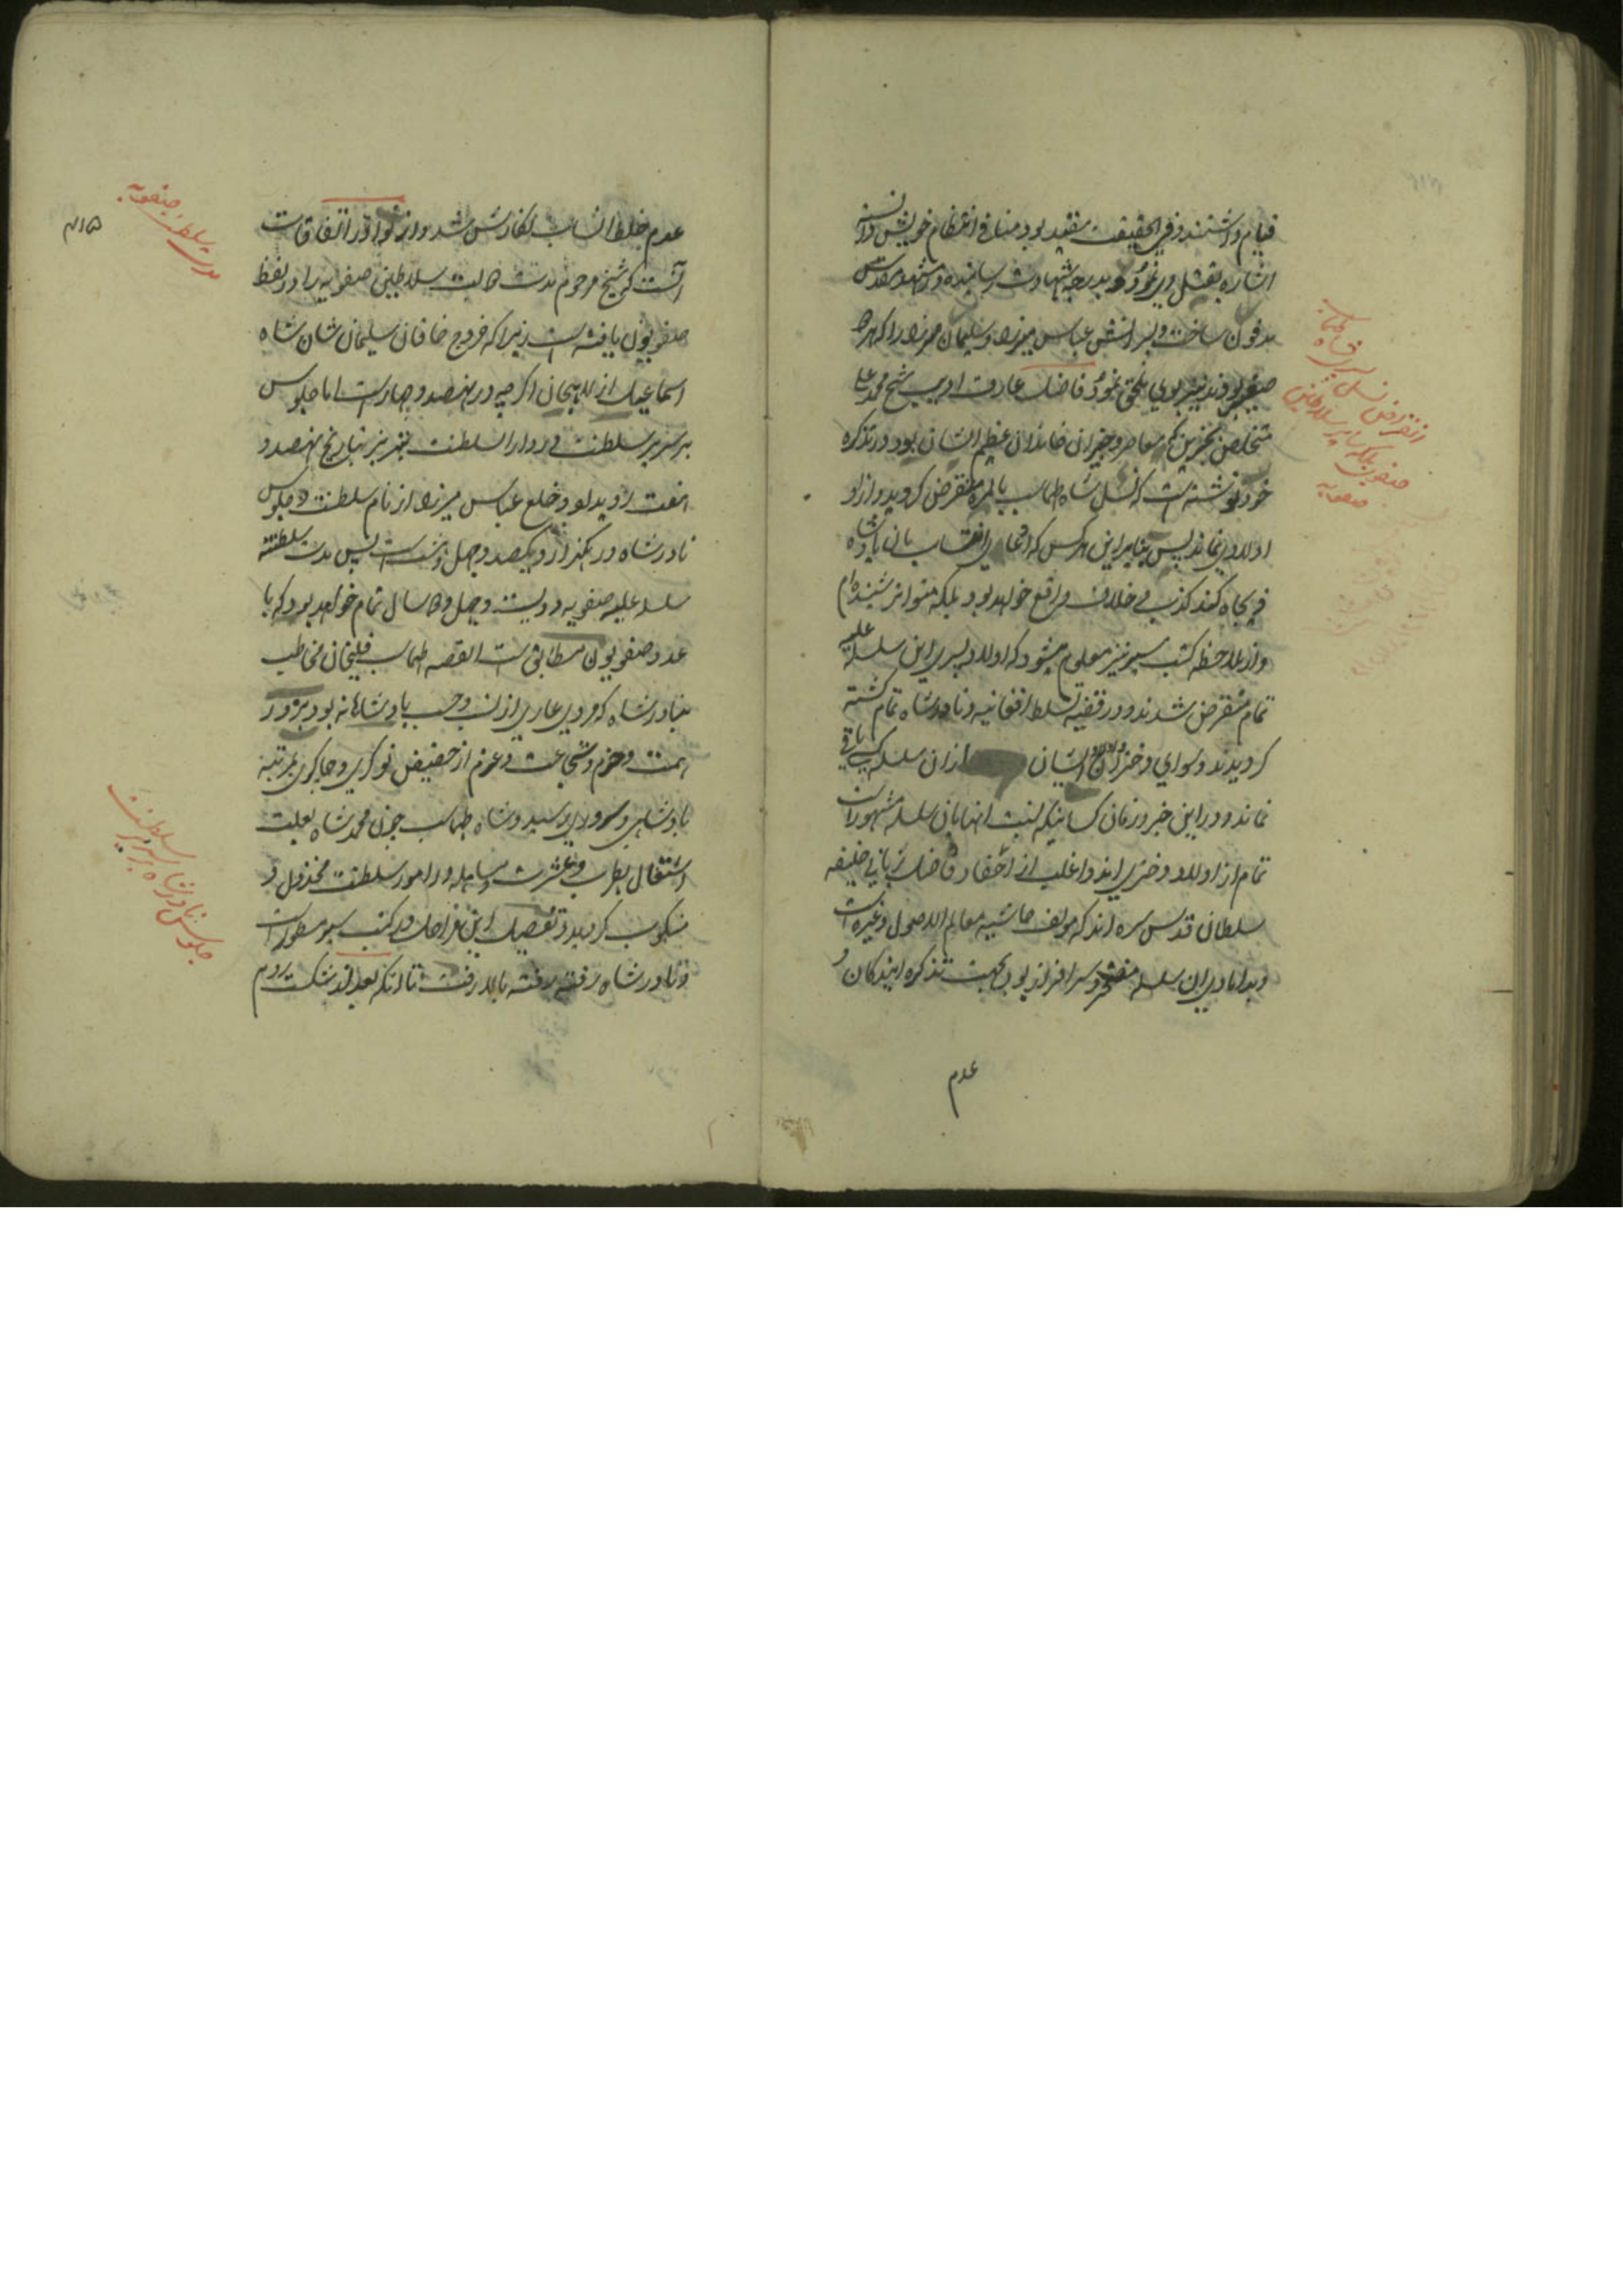 قیام داشتند و فی الحقیقت مقید بود منافی انتظام خویش دانسته
اشاره بقتل وی نمود و بدرجه شهادت رسانیده در مشهد مقدس
مدفون ساخت و پسرانش عباس میرزا و سلیمان میرزا را که هر دو
صغیر بودند نیز بوی ملحق نمود فاضل عارف ادیب شیخ محمد علی
متخلص بحزین که معاصر و خیران خاندان عظیم الشان بود در تذکره
خود نوشته است که نسل شاه طهماسب بالمره منقرض گردید و از او
اولادی نماند پس بنابراین هرکس که ادعای انتساب بان پادشاه
کند کذب و خلاف واقع خواهد بود بلکه متواتر شنیده ام
و از ملاحظه کتب سیر نیز معلوم میشود که اولاد پسری این سلسله علیه
تمام منقرض شدند و در قضیه تسلط افغانیه و نادر شاه تمام کشته
گردیدند و سوای دختران و اولاد ایشان از ان سلسله کسی باقی
نماند و در این جزو زمان کسانیکه نسبت انها بان سلسله مشهور است
تمام از اولاد دختری اند و اغلب از احفاد فاضل ربانی خلیفه
سلطان قدس سره اند که مولف حاشیه معالم الاصول و غیره است
و بدامادی ان سلسله مفتخر و سرافراز بود بجهت تذکره ایندگان و
عدم
انقراض نسل شاه طهماسب
صفوی بلکه سایر سلاطین
صفویه
عدم خلط انساب نگارش شد و از نوادر اتفاقات
آنست که شیخ مرحوم مدت دولت سلاطین صفویه را در لفظ
صفویون یافته است زیرا که خروج خاقان سلیمان شان شاه
اسماعیل از لاهیجان اگرچه در نهصد و چهار است اما جلوس
بر سریر سلطنت وی در دار السلطنت تبریز بتاریخ نهصد و
هفت روی داد و خلع عباس میرزا از نام سلطنت و جلوس
نادر شاه در یکهزار و یکصد و چهل و هشت است پس مدت سلطنت
سلسله علیه صفویه دویست و چهل و دو سال تمام خواهد بود که با
عدد صفویون مطابق است القصه طهماسب قلیخان مخاطب
بنادر شاه که مردی عاری از نسب و حسب پادشاهانه بود بزور
همت و حزم و شجاعت و عزم از حضیض نوکری و چاکری بمرتبه
پادشاهی و سروری رسید و شاه طهماسب چون محمد شاه بعلت
اشتغال بطرب و عشرت و مساهله در امور سلطنت مخذول و
منکوب گردید و تفصیل این مراحل در کتب سیر مسطور است
و نادر شاه رفته رفته بالا رفت تا انکه بعد از شکست روم
۴۱۵
مدت سلطنت صفویه
جلوس نادر شاه بر سریر سلطنت